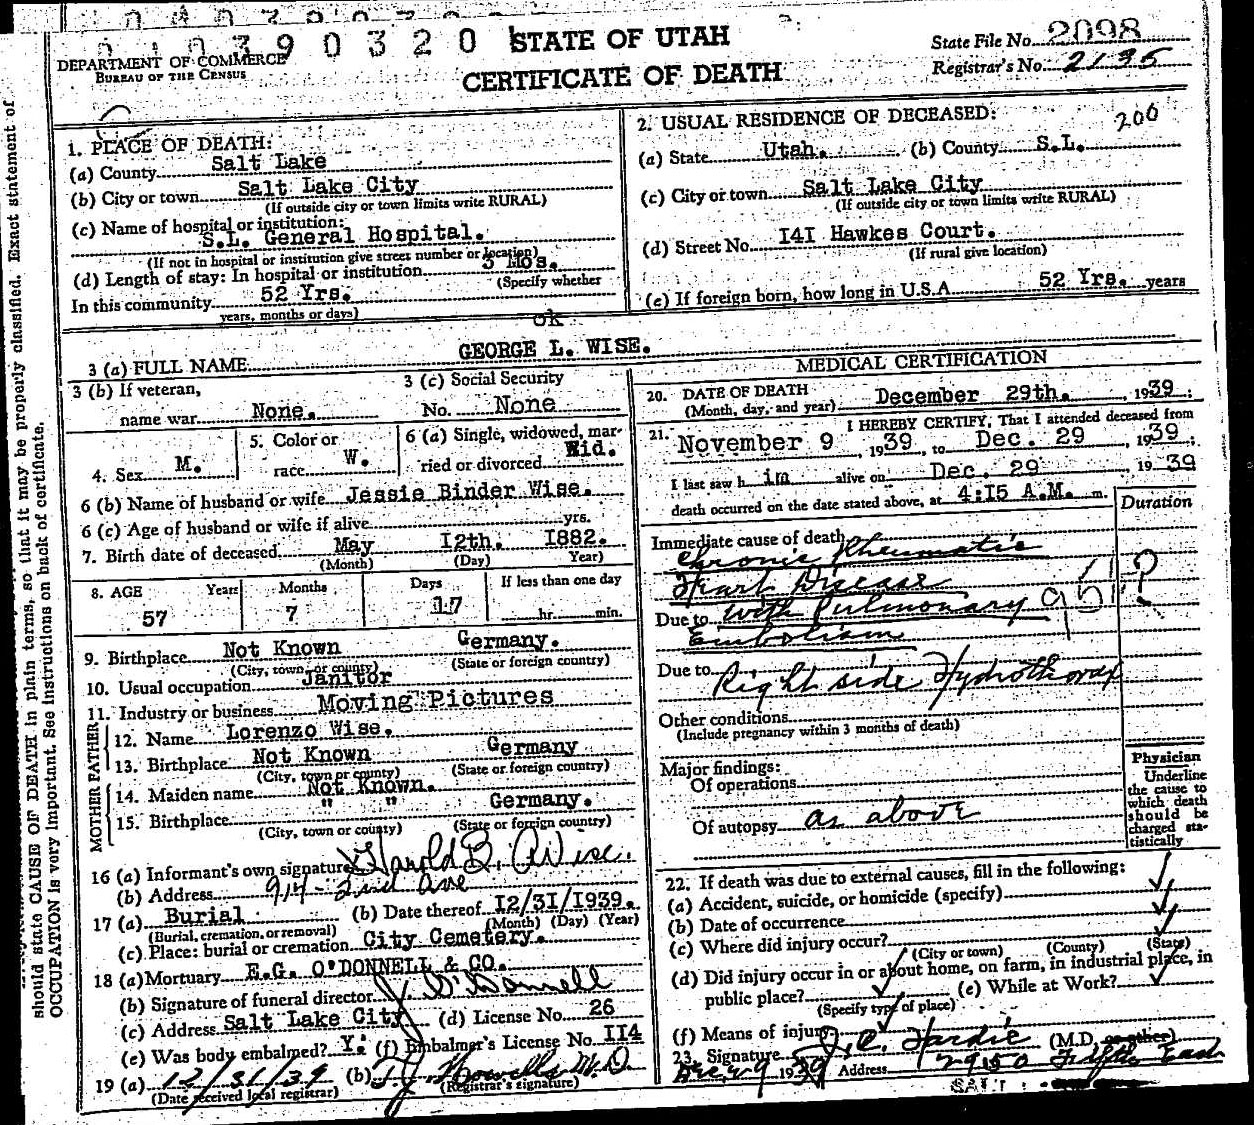 0 1 0 3 9 0 3 2 0 STATE OF UTAH
State File No. 2098
DEPARTMENT OF COMMERCE
BUREAU OF THE CENSUS
CERTIFICATE OF DEATH
Registrar's No. 2135
1. PLACE OF DEATH:
(a) County Salt Lake
(b) City or town Salt Lake City
(If outside city or town limits write RURAL)
(c) Name of hospital or institution:
S.L. General Hospital.
(If not in hospital or institution give street number or location)
(d) Length of stay: In hospital or institution 3 Mos.
(Specify whether
In this community 52 Yrs.
years, months or days)
2. USUAL RESIDENCE OF DECEASED: 200
(a) State Utah. (b) County S.L.
(c) City or town Salt Lake City
(If outside city or town limits write RURAL)
(d) Street No. I4I Hawkes Court.
(If rural give location)
(e) If foreign born, how long in U.S.A 52 Yrs. years
ok
3 (a) FULL NAME GEORGE L. WISE.
3 (b) If veteran,
name war None.
3 (c) Social Security
No. None
4. Sex M.
5. Color or
race W.
6 (a) Single, widowed, mar-
ried or divorced Wid.
6 (b) Name of husband or wife Jessie Binder Wise.
6 (c) Age of husband or wife if alive yrs.
7. Birth date of deceased May I2th. I882.
(Month) (Day) Year)
8. AGE Years Months Days If less than one day
57 7 17 hr. min.
9. Birthplace Not Known Germany.
(City, town, or county) (State or foreign country)
10. Usual occupation Janitor
11. Industry or business Moving Pictures
FATHER
12. Name Lorenzo Wise.
13. Birthplace Not Known Germany
(City, town or county) (State or foreign country)
MOTHER
14. Maiden name Not Known.
15. Birthplace " " Germany.
(City, town or county) (State or foreign country)
16 (a) Informant's own signature Harold B. Wise.
(b) Address 914 - 2nd Ave
17 (a) Burial (b) Date thereof I2/3I/I939.
(Burial, cremation, or removal) (Month) (Day) (Year)
(c) Place: burial or cremation City Cemetery.
18 (a) Mortuary E.G. O'DONNELL & CO.
(b) Signature of funeral director J. O'Donnell
(c) Address Salt Lake City (d) License No. 26
(e) Was body embalmed? Y. (f) Embalmer's License No. II4
19 (a) 12/31/39 (b) M.D.
(Date received local registrar) (Registrar's signature)
MEDICAL CERTIFICATION
20. DATE OF DEATH
(Month, day, and year) December 29th. , 1939.
21. I HEREBY CERTIFY, That I attended deceased from
November 9 , 1939, to Dec. 29 , 1939.
I last saw h im alive on Dec. 29 19 39
death occurred on the date stated above, at 4:I5 A.M. m.
Duration
Immediate cause of death
Chronic Rheumatic
Heart Disease
Due to with Pulmonary
Embolism
95 ?
Due to Right side Hydrothorax
Other conditions
(Include pregnancy within 3 months of death)
Major findings:
Of operations
Of autopsy as above
Physician
Underline
the cause to
which death
should be
charged sta-
tistically
22. If death was due to external causes, fill in the following:
(a) Accident, suicide, or homicide (specify)
(b) Date of occurrence
(c) Where did injury occur?
(City or town) (County) (State)
(d) Did injury occur in or about home, on farm, in industrial place, in
public place? (e) While at Work?
(Specify type of place)
(f) Means of injury
23. Signature J.C. Hardie (M.D. or other)
1939 Address
SALT
should state CAUSE OF DEATH in plain terms, so that it may be properly classified. Exact statement of
OCCUPATION is very important. See instructions on back of certificate.